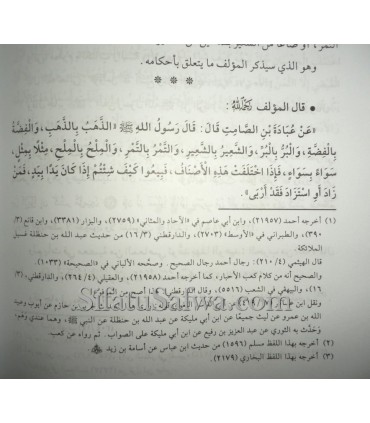 التمر، أو صاعًا من الشعير
وهو الذي سيذكر المؤلف ما يتعلق بأحكامه.
* * *
• قال المؤلف رحمه الله:
«عَنْ عُبَادَةَ بْنِ الصَّامِتِ قَالَ: قَالَ رَسُولُ اللهِ ﷺ «الذَّهَبُ بِالذَّهَبِ، وَالْفِضَّةُ
بِالْفِضَّةِ، وَالْبُرُّ بِالْبُرِّ، وَالشَّعِيرُ بِالشَّعِيرِ، وَالتَّمْرُ بِالتَّمْرِ، وَالْمِلْحُ بِالْمِلْحِ، مِثْلًا بِمِثْلٍ،
سَوَاءً بِسَوَاءٍ، فَإِذَا اخْتَلَفَتْ هَذِهِ الْأَصْنَافُ، فَبِيعُوا كَيْفَ شِئْتُمْ إِذَا كَانَ يَدًا بِيَدٍ، فَمَنْ
زَادَ أَوِ اسْتَزَادَ فَقَدْ أَرْبَى».
(١) أخرجه أحمد (٢١٩٥٧)، وابن أبي عاصم في «الآحاد والمثاني» (٢٧٥٩)، والبزار (٣٣٨١)، وابن قانع (٢/
٣٩٠)، والطبراني في «الأوسط» (٢٧٠٣)، والدارقطني (١٦/٣) من حديث عبد الله بن حنظلة غسيل
الملائكة.
قال الهيثمي (٢١٠/٤): رجال أحمد رجال الصحيح. وصححه الألباني في «الصحيحة» (١٠٣٣)
والصحيح أنه من كلام كعب الأحبار، كما أخرجه أحمد (٢١٩٥٨)، والعقيلي (٢٦٤/٢)، والدارقطني (٣/
١٦)، والبيهقي في الشعب (٥٥١٦)، وقال الدارقطني: هذا أصح من المرفوع.
ونقل ابن
الله بن عمرو عن ليث جميعًا عن ابن أبي مليكة عن عبد الله بن حنظلة عن النبي ﷺ، وهما عندي وهم،
وحدَّث به الثوري عن عبد العزيز بن رفيع عن ابن أبي مليكة على الصواب. ثم رواه عن كعب.
(٢) أخرجه بهذا اللفظ مسلم (١٥٩٦) من حديث ابن عباس عن أسامة بن زيد
(٣) أخرجه بهذا اللفظ البخاري (٢١٧٩)
SifatuSafwa.com